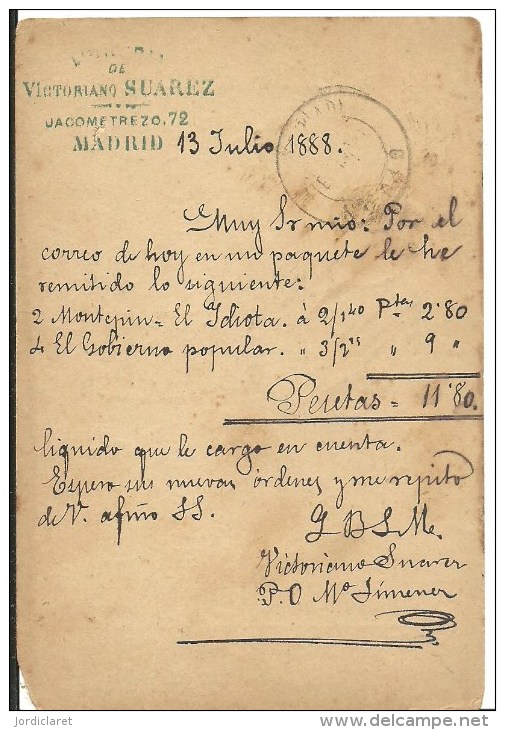 DE
VICTORIANO SUAREZ
JACOMETREZO, 72
MADRID
13 Julio 1888.
Muy Sr mio: Por el
correo de hoy en un paquete le he
remitido lo siguiente:
2 Montepin = El Idiota. á 2/1'40 Ptas 2'80
4 El Gobierno popular. " 3/2'25 " 9 "
Pesetas = 11'80.
liquido que le cargo en cuenta.
Espero sus nuevas órdenes y me repito
de V. afmo SS.
Q B S M.
Victoriano Suarez
P.O Mo Jimenez
jordiclaret
www.delcampe.net